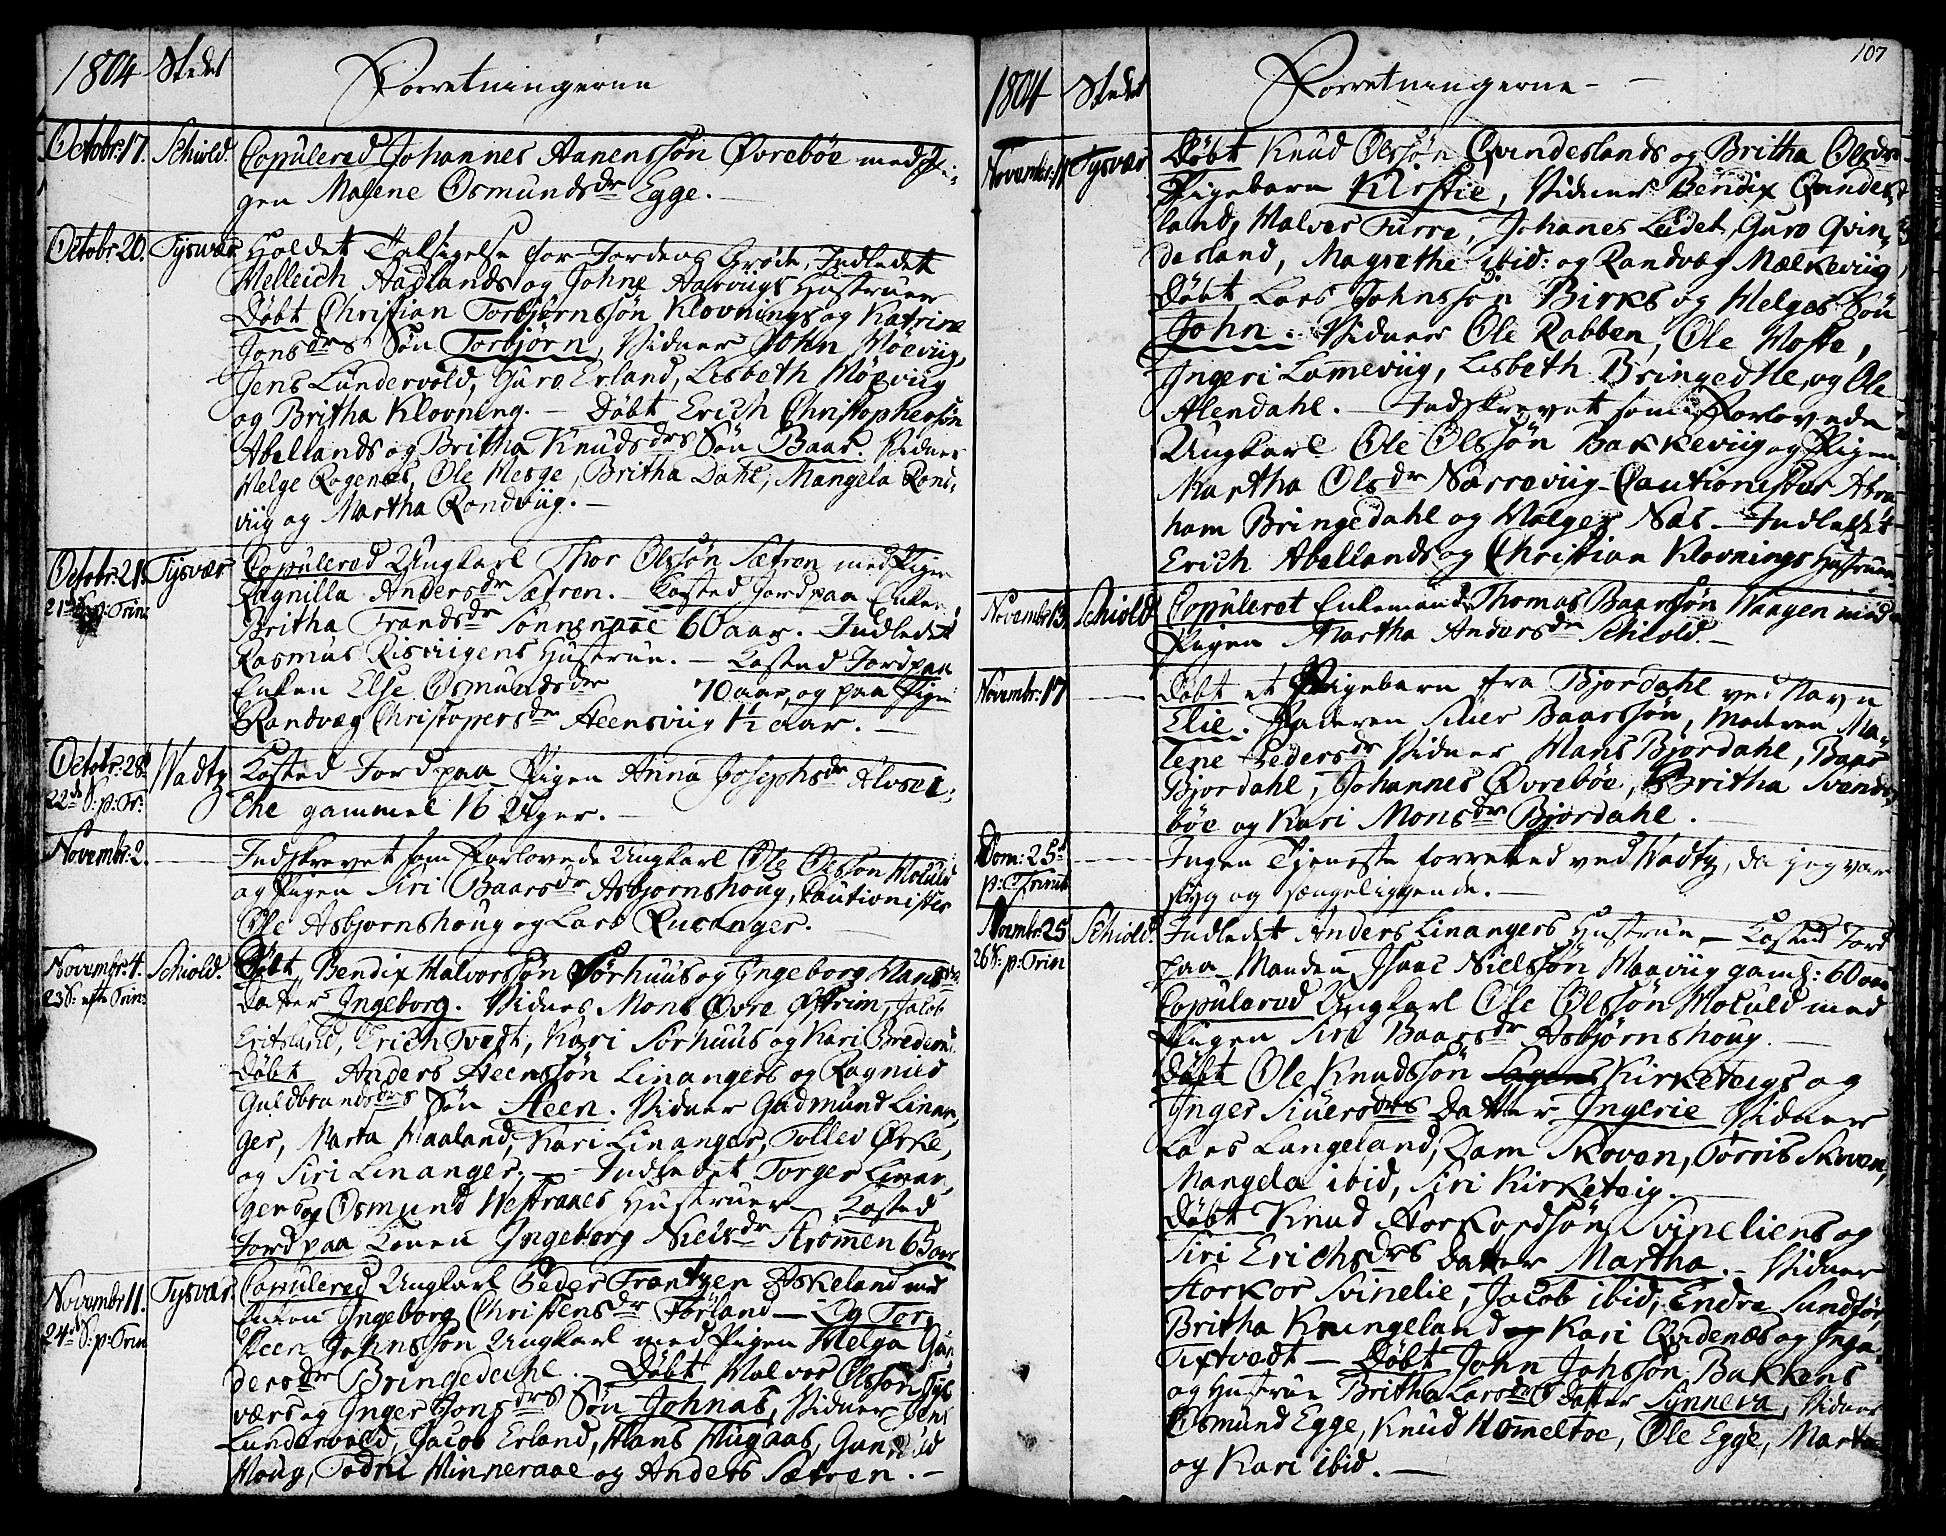 1804 Stedet Forretningerne
Octobr: 17. Schiold. Copulered Johannes Aanenssøn Øvrebøe med Pi-
gen Malene Osmundsdr Egge. -
Octobr: 20. Tysvær Holdet Taksigelse for Jordens Grøde, Indledet
Melleich Aadlands og Johne Aarviigs Hustruer
Døbt Christian Torbjørnssøn Klovnings og Katrine
Jonsdrs Søn Torbjørn, Vidner John Moeviig,
Jens Lundervold, Guro Erland, Lisbeth Høeviig
og Britha Klovning. - Døbt Erich Christophersøn
Abellands og Britha Knudsdrs Søn Baar. Vidner
Helge Rogenæs, Ole Mesge, Britha Dahl, Mangela Rond-
viig og Martha Rondviig. -
Octobr: 21. Tysvær Copulered Ungkarl Thor Olssøn Sætren med Pigen
21de S: p: Trin: Ragnilla Andersdr Sætren. - Kasted Jord paa Enken
Britha Frandsdr Sønnenaae 60 aar. Indledet
Rasmus Risviigens Hustrue. - Kasted Jord paa
Enken Else Osmundsdr 70 aar, og paa Pigen
Randvæg Christopersdr Steensviig 1½ aar. -
Octobr: 28. Wadtz Kasted Jord paa Pigen Anna Josephsdr Alvsei-
22de S: p: Tr: Ehe gammel 16 Uger. -
Novembr: 2. - Indskrevet som Forlovede Ungkarl Ole Olssøn Moluld
og Pigen Siri Baarsdr Asbjørnshoug, Cautionister
Ole Asbjørnshoug og Lars Rucanger. -
Novembr: 4. Schiold. Døbt Bendix Halvorssøn Sørhuus og Ingeborg Hansdrs
23 S: efter Trin: Datter Ingeborg. Vidner Mons Øvre Østrim, Jacob
Eritsland, Erich Tvedt, Kari Sørhuus og Kari
Døbt Anders Steenssøn Linangers og Ragnild
Guldbrandsdrs Søn Steen. Vidner Gudmund Linan-
ger, Marta Haaland, Kari Linanger, Tollev Ørke,
og Siri Linanger. - Indledet Torger Linan-
gers og Osmund Westraaes Hustruer - Kasted
Jord paa Konen Ingeborg Nielsdr Strømmen 65 aar
Novembr 11. Tysvær. Copulered Ungkarl Peder Frantzen Eskeland med
24de S: p: Trin Enken Ingeborg Christensdr Førland - Og Tor-
steen Johnssøn Ungkarl med Pigen Helga Gun-
dersdr Bringedehl. - Døbt Halvor Olssøn Tys-
værs og Inger Jonsdrs Søn Johnas, Vidner Jens
Lundervold, Jacob Erland, Hans Hugaas, Gunnild
Houg, Todni Hinneraae og Anders Sætren. -
107
1804 Stedet Forretningerne -
Novembr: 11 Tysvær Døbt Knud Olssøn Qvindeslands og Britha Olsdrs
Pigebarn Kirstie, Vidner Bendix Qvindes-
land, Halvor Furre, Johanes Leidet, Guro Qvin-
desland, Magrethe ibid: og Randvæg Mælkeviig
Døbt Lars Johnssøn Birks og Helges Søn
John. Vidner Ole Rabben, Ole Hoste,
Ingeri Lameviig, Lisbeth Bringedhl, og Ole
Alendahl. - Indskrevet som Forlovede
Ungkarl Ole Olssøn Bakkeviig og Pigen
Martha Olsdr Nærreviig - Cautionister Abra-
ham Bringedahl og Holger Næs - Indledet
Erich Abellands og Christian Klovnings Hustruer
Novembr 13. Schiold Copuleret Enkemand Thomas Baarssøn Waagen med
Pigen Martha Andersdr Schiold. -
Novembr: 17 - Døbt et Pigebarn fra Bjordahl ved Navn
Elie. Faderen Siuer Baarssøn, Moderen Ma-
lene Pedersdr Vidner Hans Bjordahl, Baar
Bjordahl, Johannes Øvrebøe, Britha Svende-
bøe og Kari Monsdr Bjordahl.
Dom: 25d - Ingen Tjeneste forretted ved Wadtz, da jeg var
p: Trinit syg og sængeliggende. -
Novembr 25 Schiold. Indledet Anders Linangers Hustrue - Kasted Jord
26 S: p: Trin paa Manden Isaac Nielssøn Waaviig gaml: 60 aar
Copulered Ungkarl Ole Olssøn Moluld med
Pigen Siri Baarsdr Asbjørnshoug. -
Døbt Ole Knudssøn Kirketeigs og
Inger Siuersdrs Datter Ingerie Vidner
Lars Langeland, Dam Skoven, Torris Skoven,
Mangela ibid, Siri Kirketeig. -
Døbt Knud Storkordsøn Svineliens og
Siri Erichsdrs Datter Martha. - Vidner
Storkor Svinelie, Jacob ibid, Endre Sundfør,
Britha Krungeland og Kari Qvidenæs og Inga
Tixtvedt - Døbt John Johssøn Bakkens
og Hustrue Britha Larsdrs Datter Synneva, Vidner
Osmund Egge, Knud Hommeltoe, Ole Egge, Marta
og Kari ibid. -